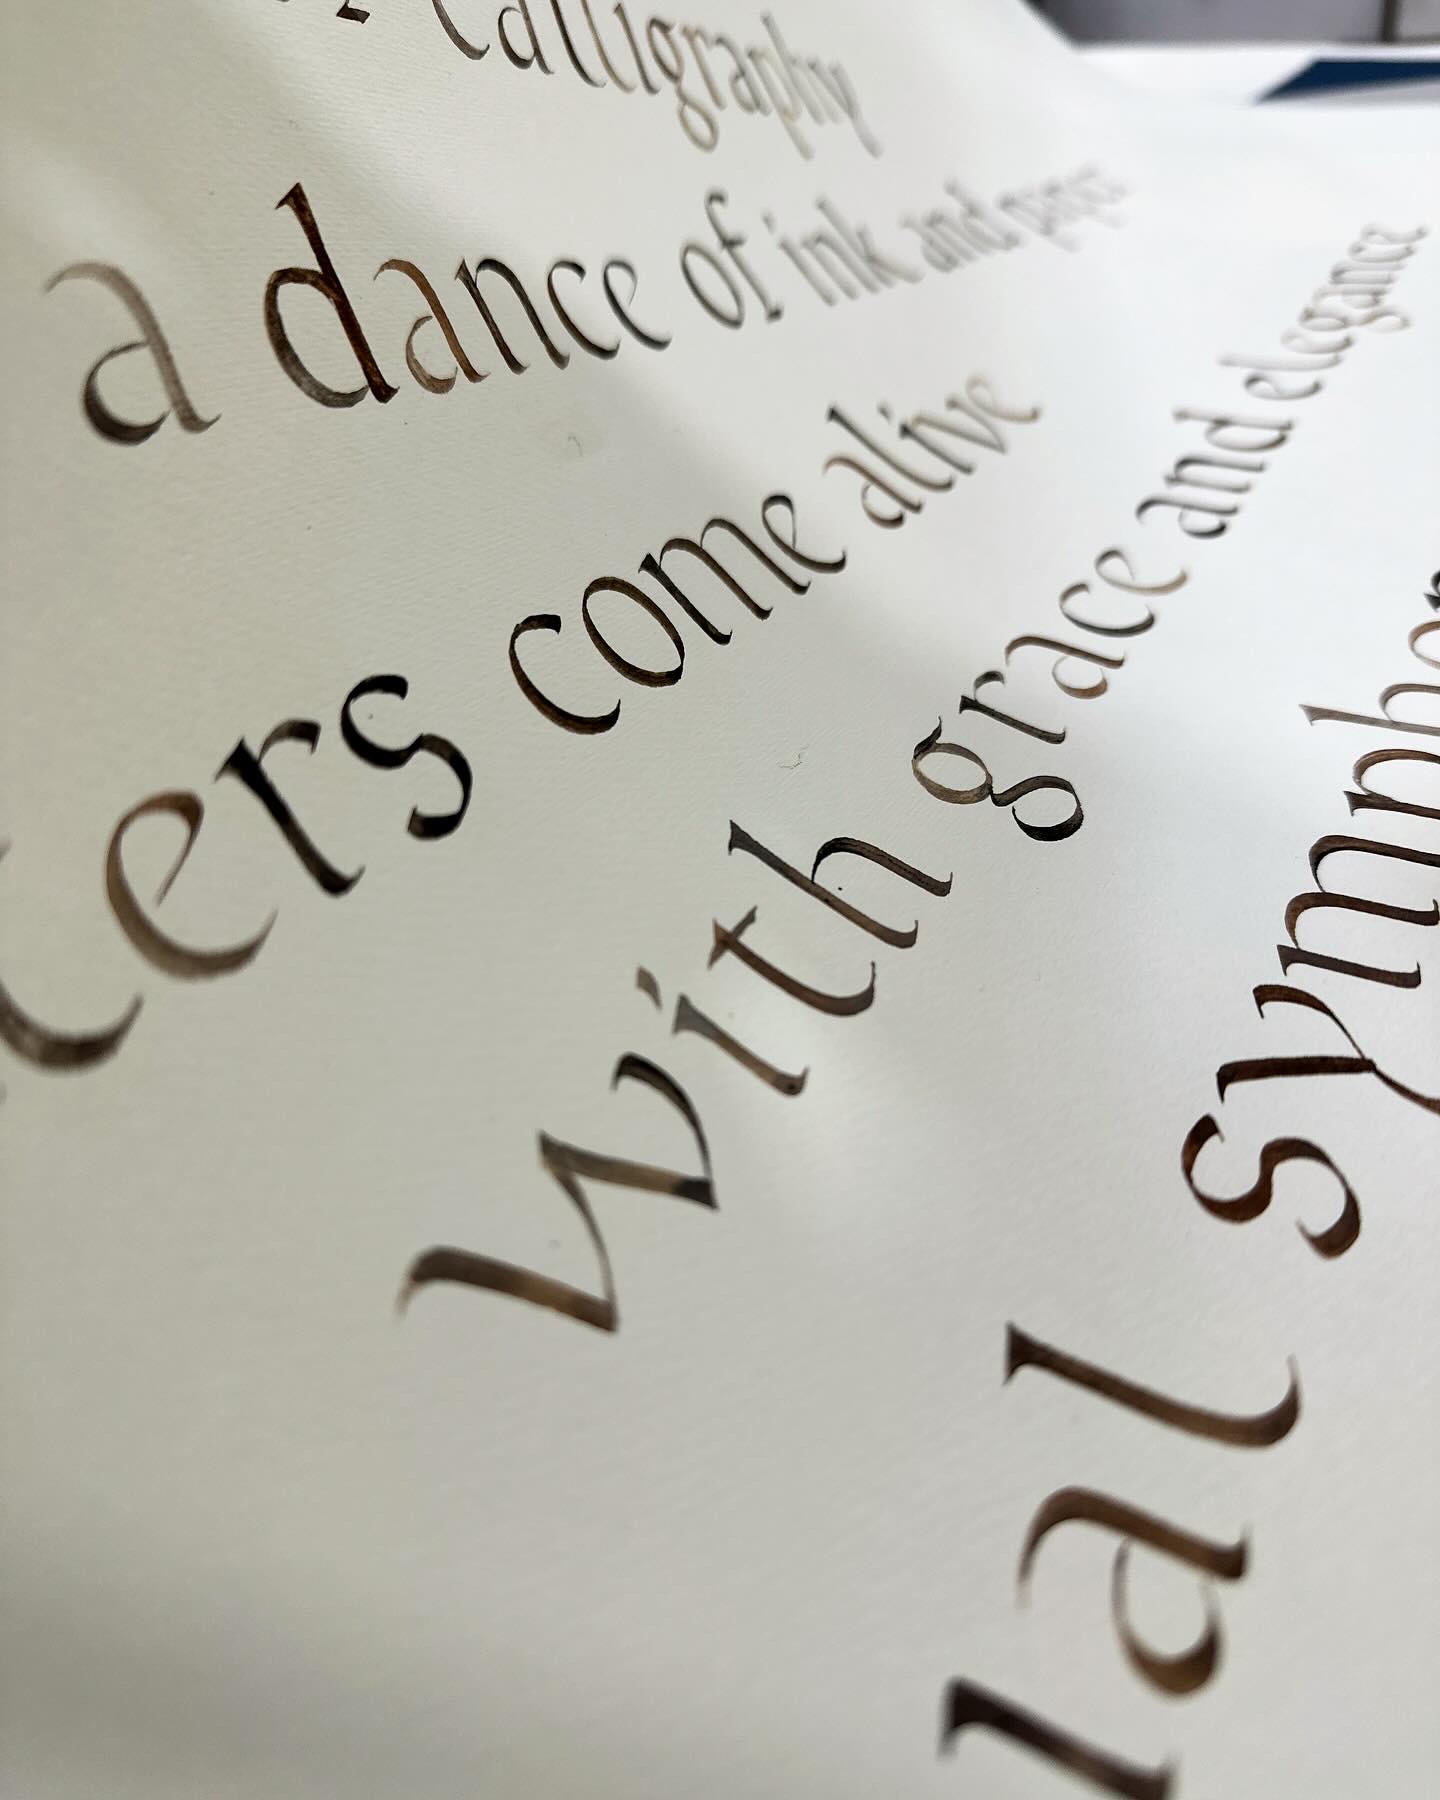 Calligraphy
a dance of ink and paper
ters come alive
with grace and elegance
al symphon